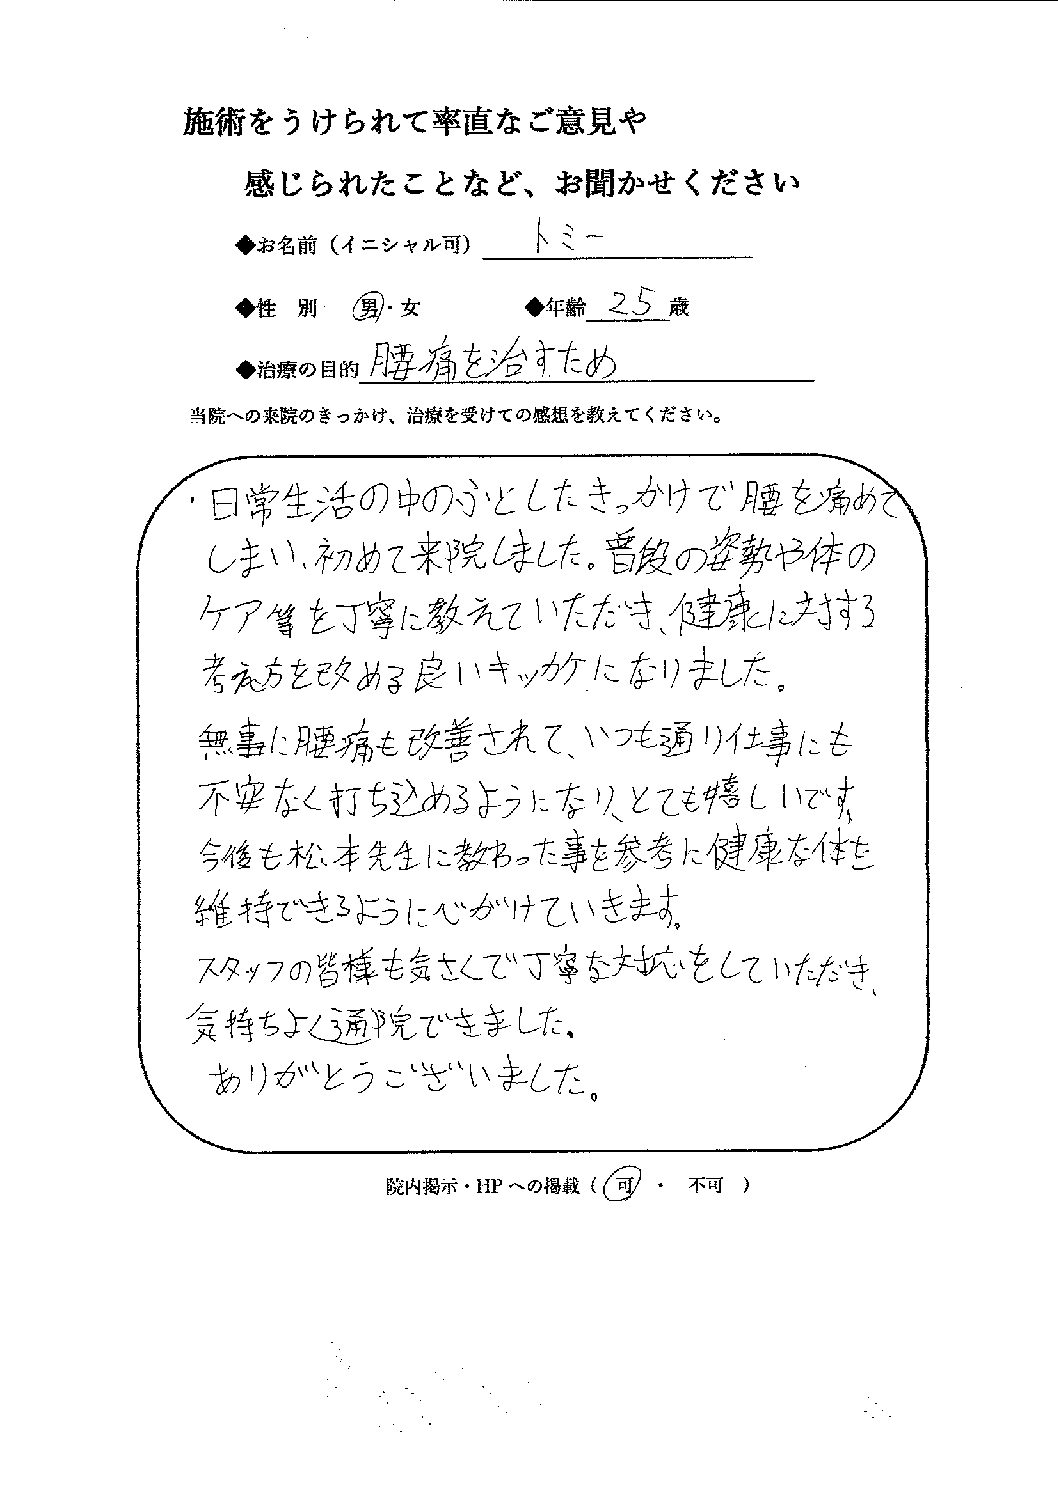 施術をうけられて率直なご意見や
感じられたことなど、お聞かせください
◆お名前（イニシャル可） トミー
◆性 別 男・女 ◆年齢 25 歳
◆治療の目的 腰痛を治すため
当院への来院のきっかけ、治療を受けての感想を教えてください。
・日常生活の中のふとしたきっかけで腰を痛めて
しまい、初めて来院しました。普段の姿勢や体の
ケア等を丁寧に教えていただき、健康に対する
考え方を改める良いキッカケになりました。
無事に腰痛も改善されて、いつも通り仕事にも
不安なく打ち込めるようになり、とても嬉しいです。
今後も松本先生に教わった事を参考に健康な体を
維持できるように心がけていきます。
スタッフの皆様も気さくで丁寧な対応をしていただき、
気持ちよく通院できました。
ありがとうございました。
院内掲示・HPへの掲載（ 可 ・ 不可 ）